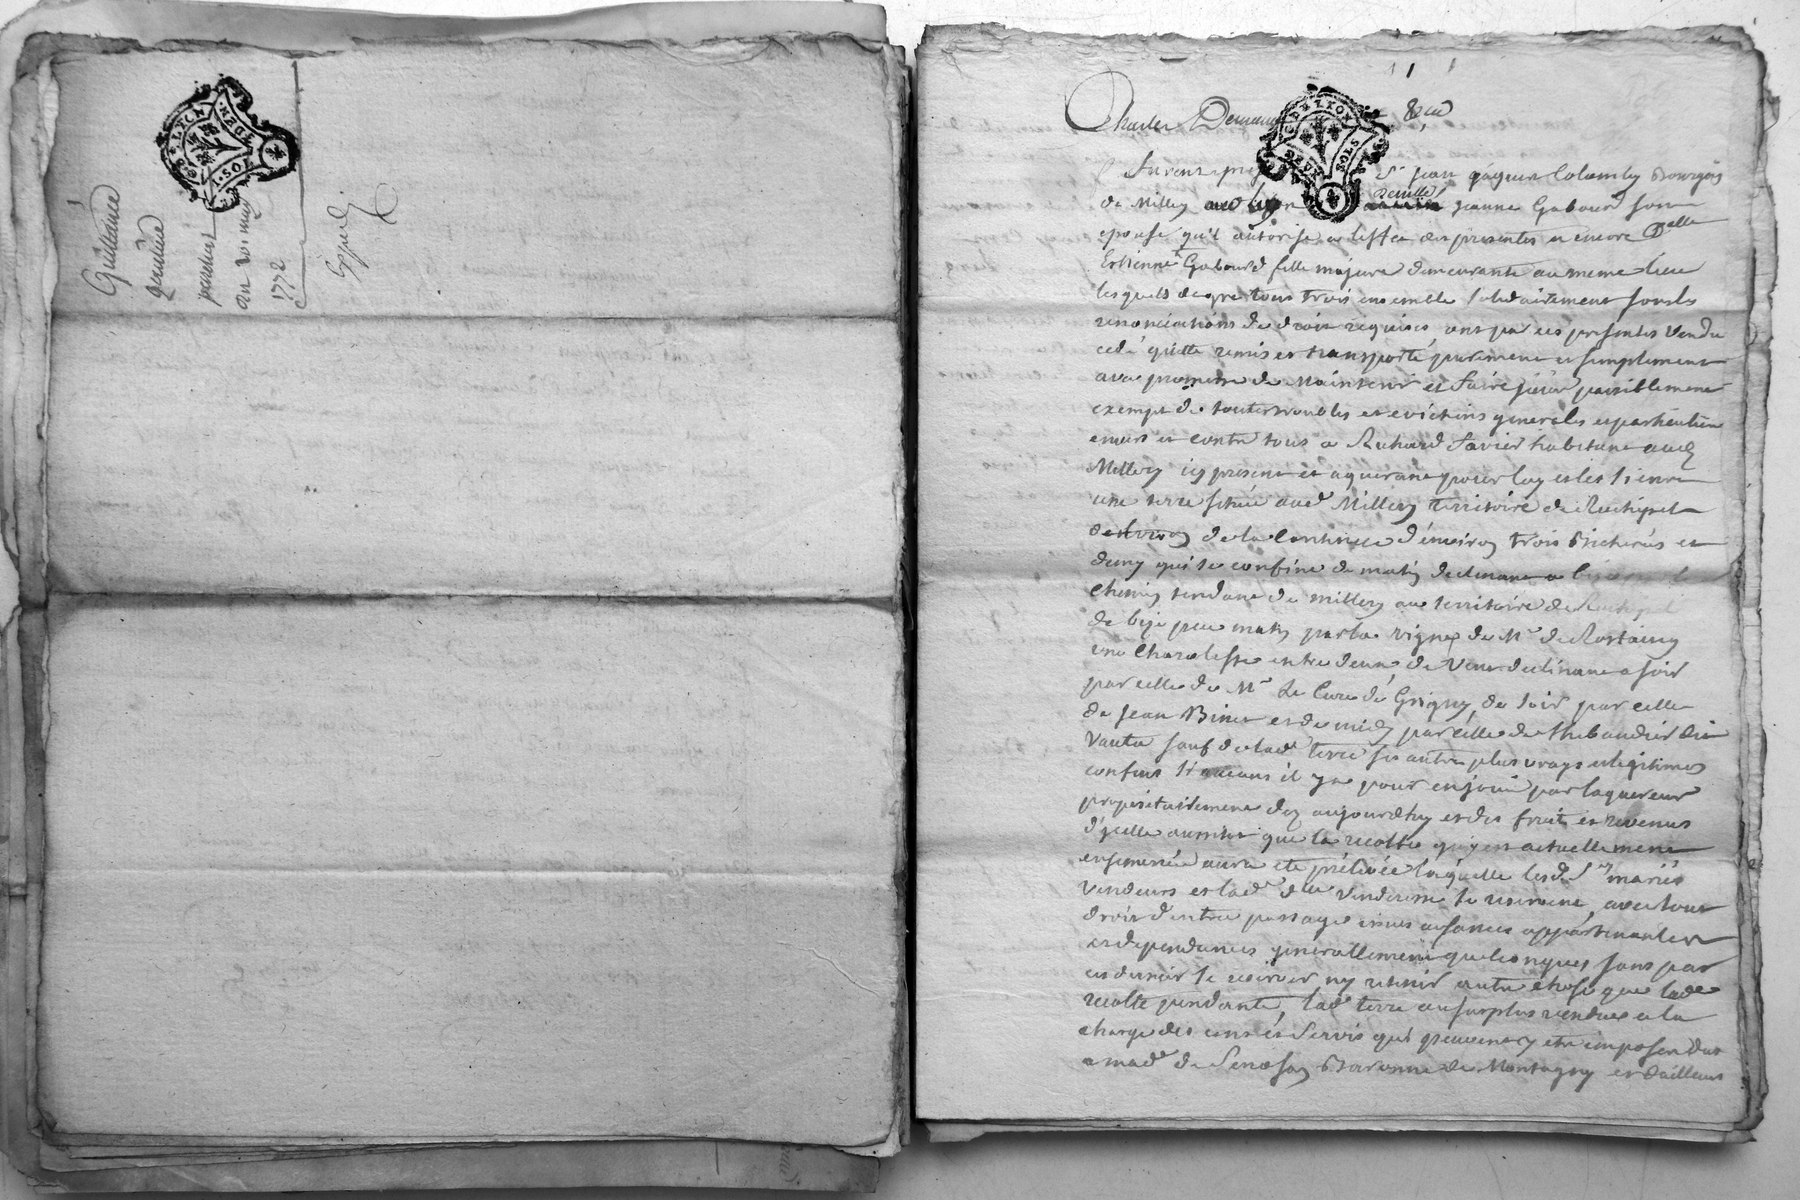 Quittance
generalle
1772
Expedié
G DE LYON
SOLS
DEUX
Charles
Sr Jean jaques Colomby Bourgois
de Millery jeanne Gabourd son
epouse qu'il autorise a leffet des presentes et encore Dlle
Estienne Gabourd fille majeure demeurante au meme lieu
lesquels de gre tous trois ensemble solidairement sous les
renonciations de droit requises ont par ces presentes vendu
cedé quitté remis et transporté purement et simplement
avec promesse de maintenir et faire jouir paisiblement
exempt de tous troubles et evictions generales et particulieres
envers et contre tous a Richard Favier habitant aud
Millery icy present et aquerant pour luy et les siens
une terre située aud Millery territoire de
de la contenue d'environ trois bicherées et
demy qui se confine de matin declinant a bize
chemin tendant de Millery au territoire de
de bize peu matin par la vigne de Mr de Rostaing
une charalesse entre deux de vent declinant a soir
par celle de Mr Le Curé de Grigny, de soir par celle
de Jean Binet et de midy par celle de Thibaudier dit
sauf de lade terre ses autres plus vrays et legitimes
confins si aucuns il y a pour en jouir par laquereur
proprietairement dez aujourdhuy et des fruits et revenus
d'ycelle aussitot que la recolte qui y est actuellement
ensemensée aura eté prélevée laquelle lesd Srs mariés
vendeurs et lade Dlle venderesse se reservent, avec tous
droits d'entrée passage issues aisances appartenances
et dependances generallement quelconques sans par
se reserver ny retenir autre chose que lade
recolte pendante, lade terre au surplus vendue a la
charge des cens et servis qui peuvent y etre imposés dus
a made de Senosan Baronne de Montagny et d'ailleurs